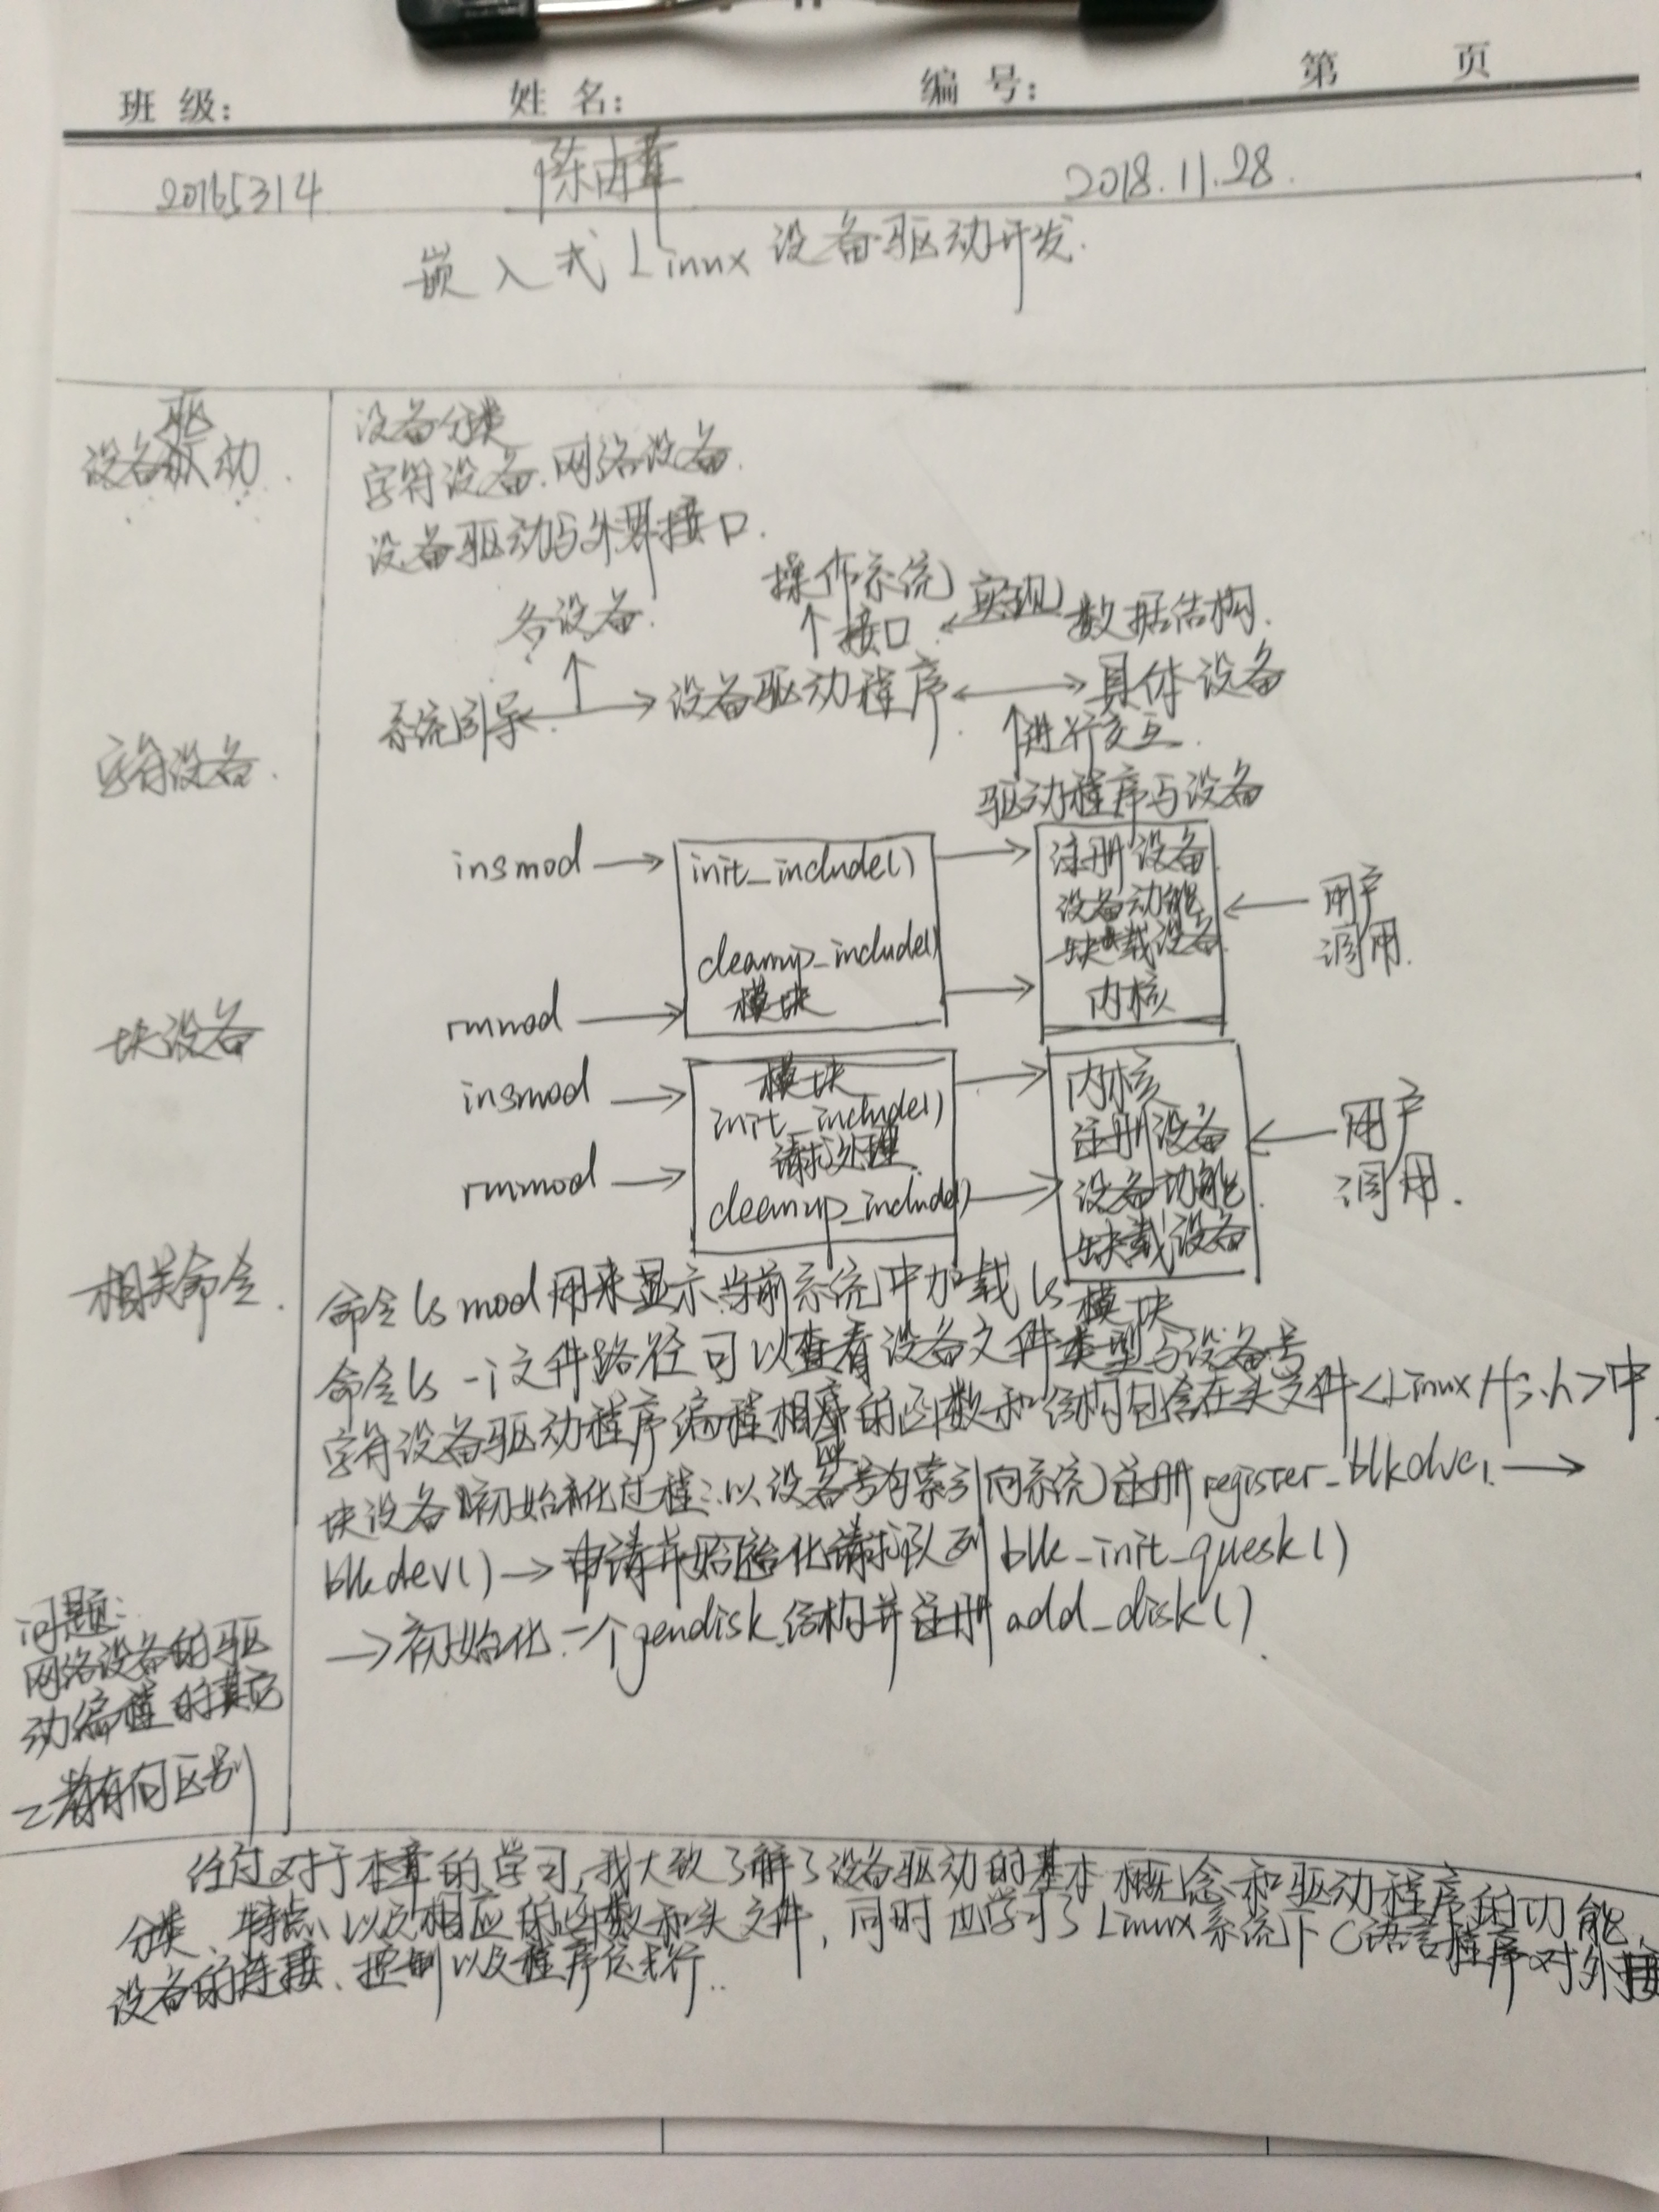 班 级： 姓 名： 编 号： 第 页
20165314 2018.11.28.
嵌入式Linux设备驱动开发.
驱
设备 动.
设备分类
字符设备.网络设备.
设备驱动与外界接口.
操作系统
各设备. ↑接口 ← 实现 数据结构.
↑
系统引导 ←→ 设备驱动程序 ←→ 具体设备
字符设备.
↑进行交互.
驱动程序与设备
insmod → init_include() → 注册设备
设备功能 ← 用户
卸载设备 调用.
cleanup_include()
rmmod → 模块 → 内核
块设备
insmod → 模块 → 内核
init_include() 注册设备 ← 用户
请求处理 设备功能 调用.
rmmod → cleanup_include() →
载设备
相关命令.
命令lsmod用来显示当前系统中加载 ls 模块
命令ls -i文件路径可以查看设备文件类型与设备号
字符设备驱动程序编程相应的函数和结构包含在头文件<Linux/fs.h>中
块设备初始化过程：以设备号为索引向系统注册register_blkdvc. →
blkdev() → 申请并初始化请求队列blk_init_quesk()
→ 初始化一个gendisk结构并注册add_disk().
问题：
网络设备的驱
动编程的其它
二者有何区别
经过对于本章的学习,我大致了解了设备驱动的基本概念和驱动程序的功能,
分类、特点、以及相应的函数和头文件,同时也学习了Linux系统下C语言程序对外接
设备的连接、控制以及程序 行..